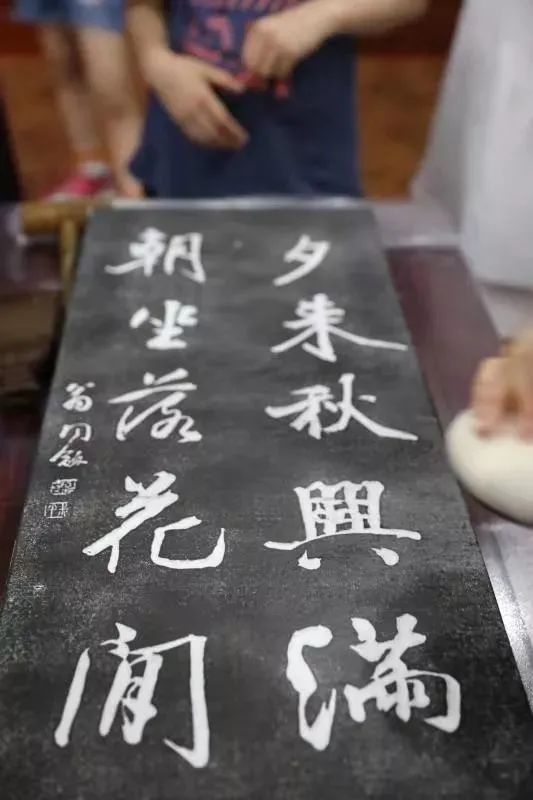 夕來秋興滿
朝坐落花閒
翁同龢